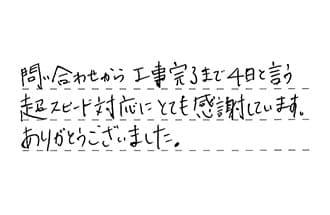 問い合わせから工事完了まで4日と言う
超スピード対応にとても感謝しています。
ありがとうございました。